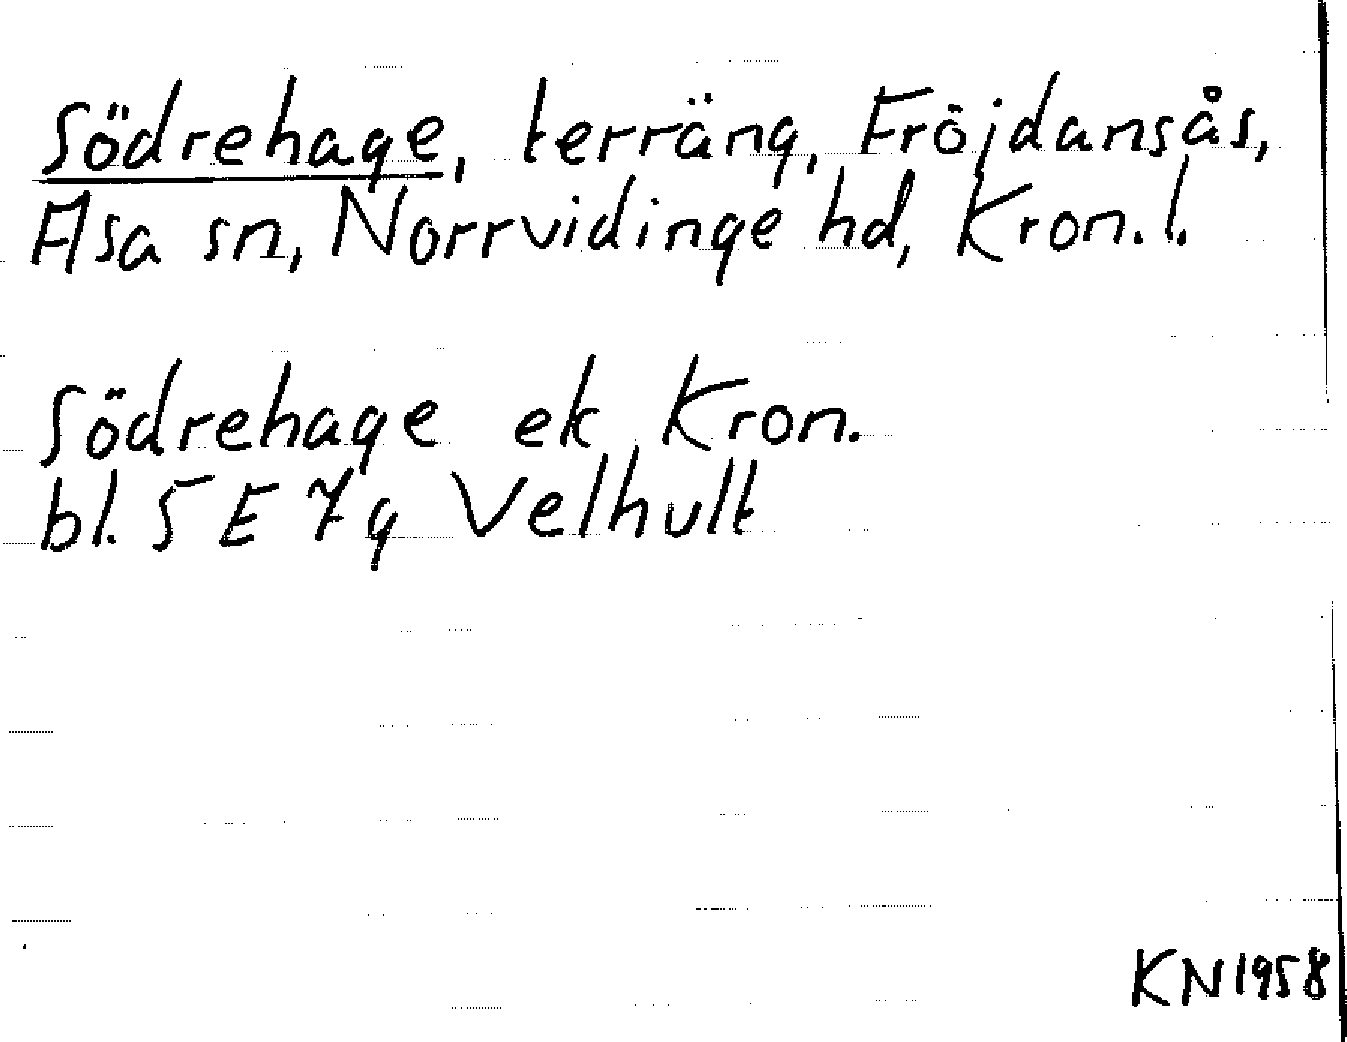 Södrehage, terräng, Fröjdansås,
Asa sn, Norrvidinge hd, Kron. l.
Södrehage ek Kron.
bl. 5 E 7g Velhult
KN1958